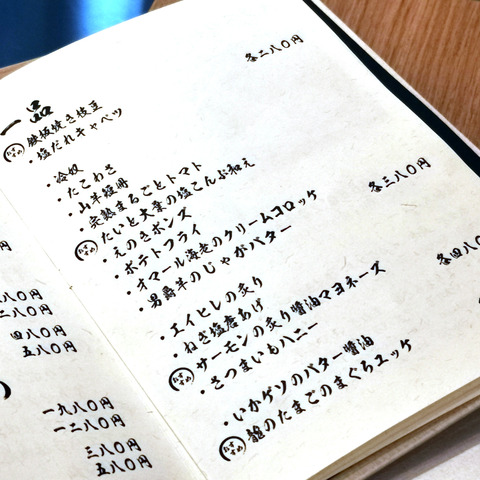 一品
各二八〇円
おすすめ 鉄板焼き枝豆
・塩だれキャベツ
・冷奴
・たこわさ
・山芋短冊
・完熟まるごとトマト
おすすめ たいと大葉の塩こんぶ和え
各三八〇円
・えのきポンズ
・ポテトフライ
・オマール海老のクリームコロッケ
・男爵芋のじゃがバター
各四八〇
・エイヒレの炙り
・ねぎ塩唐あげ
おすすめ サーモンの炙り醬油マヨネーズ
・さつまいもハニー
・いかゲソのバター醬油
おすすめ 龍のたまごのまぐろユッケ
円
八〇円
二八〇円
四八〇円
五八〇円
一九八〇円
一二八〇円
三八〇円
五八〇円